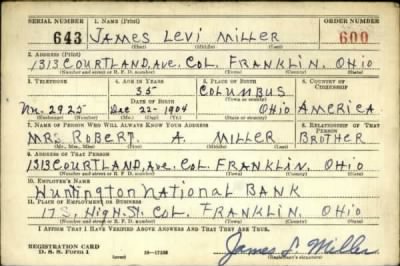 SERIAL NUMBER 1. NAME (Print) ORDER NUMBER
643 JAMES LEVI MILLER 600
(First) (Middle) (Last)
2. ADDRESS (Print)
1313 COURTLAND, AVE. COL. FRANKLIN, OHIO
(Number and street or R. F. D. number) (Town) (County) (State)
3. TELEPHONE 4. AGE IN YEARS 5. PLACE OF BIRTH 6. COUNTRY OF CITIZENSHIP
35 COLUMBUS
DATE OF BIRTH (Town or county)
2925 Dec 22-1904 OHIO AMERICA
(Exchange) (Number) (Mo.) (Day) (Yr.) (State or country)
7. NAME OF PERSON WHO WILL ALWAYS KNOW YOUR ADDRESS 8. RELATIONSHIP OF THAT PERSON
MR. ROBERT A. MILLER BROTHER
(Mr., Mrs., Miss) (First) (Middle) (Last)
9. ADDRESS OF THAT PERSON
1313 COURTLAND, AVE. COL. FRANKLIN, OHIO
(Number and street or R. F. D. number) (Town) (County) (State)
10. EMPLOYER'S NAME
HUNTINGTON NATIONAL BANK
11. PLACE OF EMPLOYMENT OR BUSINESS
17 S. HIGH. ST. COL. FRANKLIN, OHIO
(Number and street or R. F. D. number) (Town) (County) (State)
I AFFIRM THAT I HAVE VERIFIED ABOVE ANSWERS AND THAT THEY ARE TRUE.
REGISTRATION CARD
D. S. S. Form 1 (over) (Registrant's signature)
James L. Miller